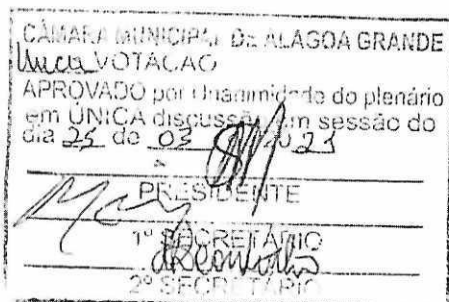 CÂMARA MUNICIPAL DE ALAGOA GRANDE
Única VOTAÇÃO
APROVADO por Unanimidade do plenário
em ÚNICA discussão em sessão do
dia 25 de 03
PRESIDENTE
1º SECRETÁRIO
2º SECRETÁRIO